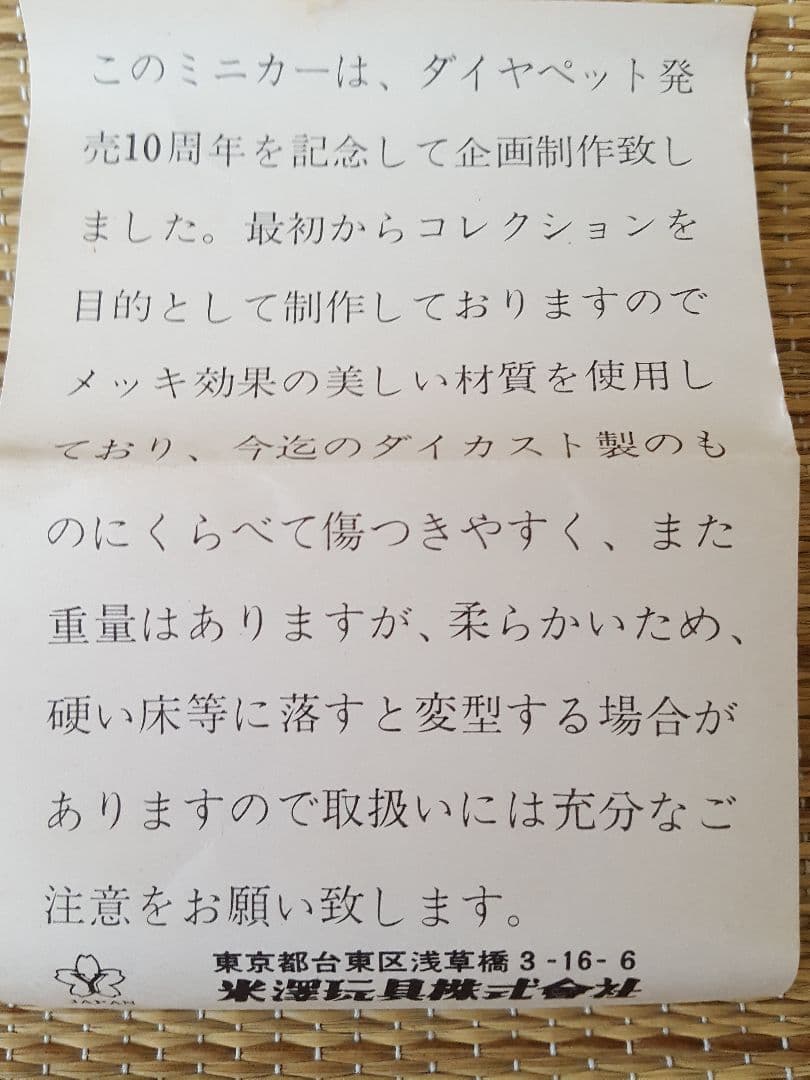 このミニカーは、ダイヤペット発
売10周年を記念して企画制作致し
ました。最初からコレクションを
目的として制作しておりますので
メッキ効果の美しい材質を使用し
ており、今迄のダイカスト製のも
のにくらべて傷つきやすく、また
重量はありますが、柔らかいため、
硬い床等に落すと変型する場合が
ありますので取扱いには充分なご
注意をお願い致します。
東京都台東区浅草橋3-16-6
米澤玩具株式会社
Y
JAPAN